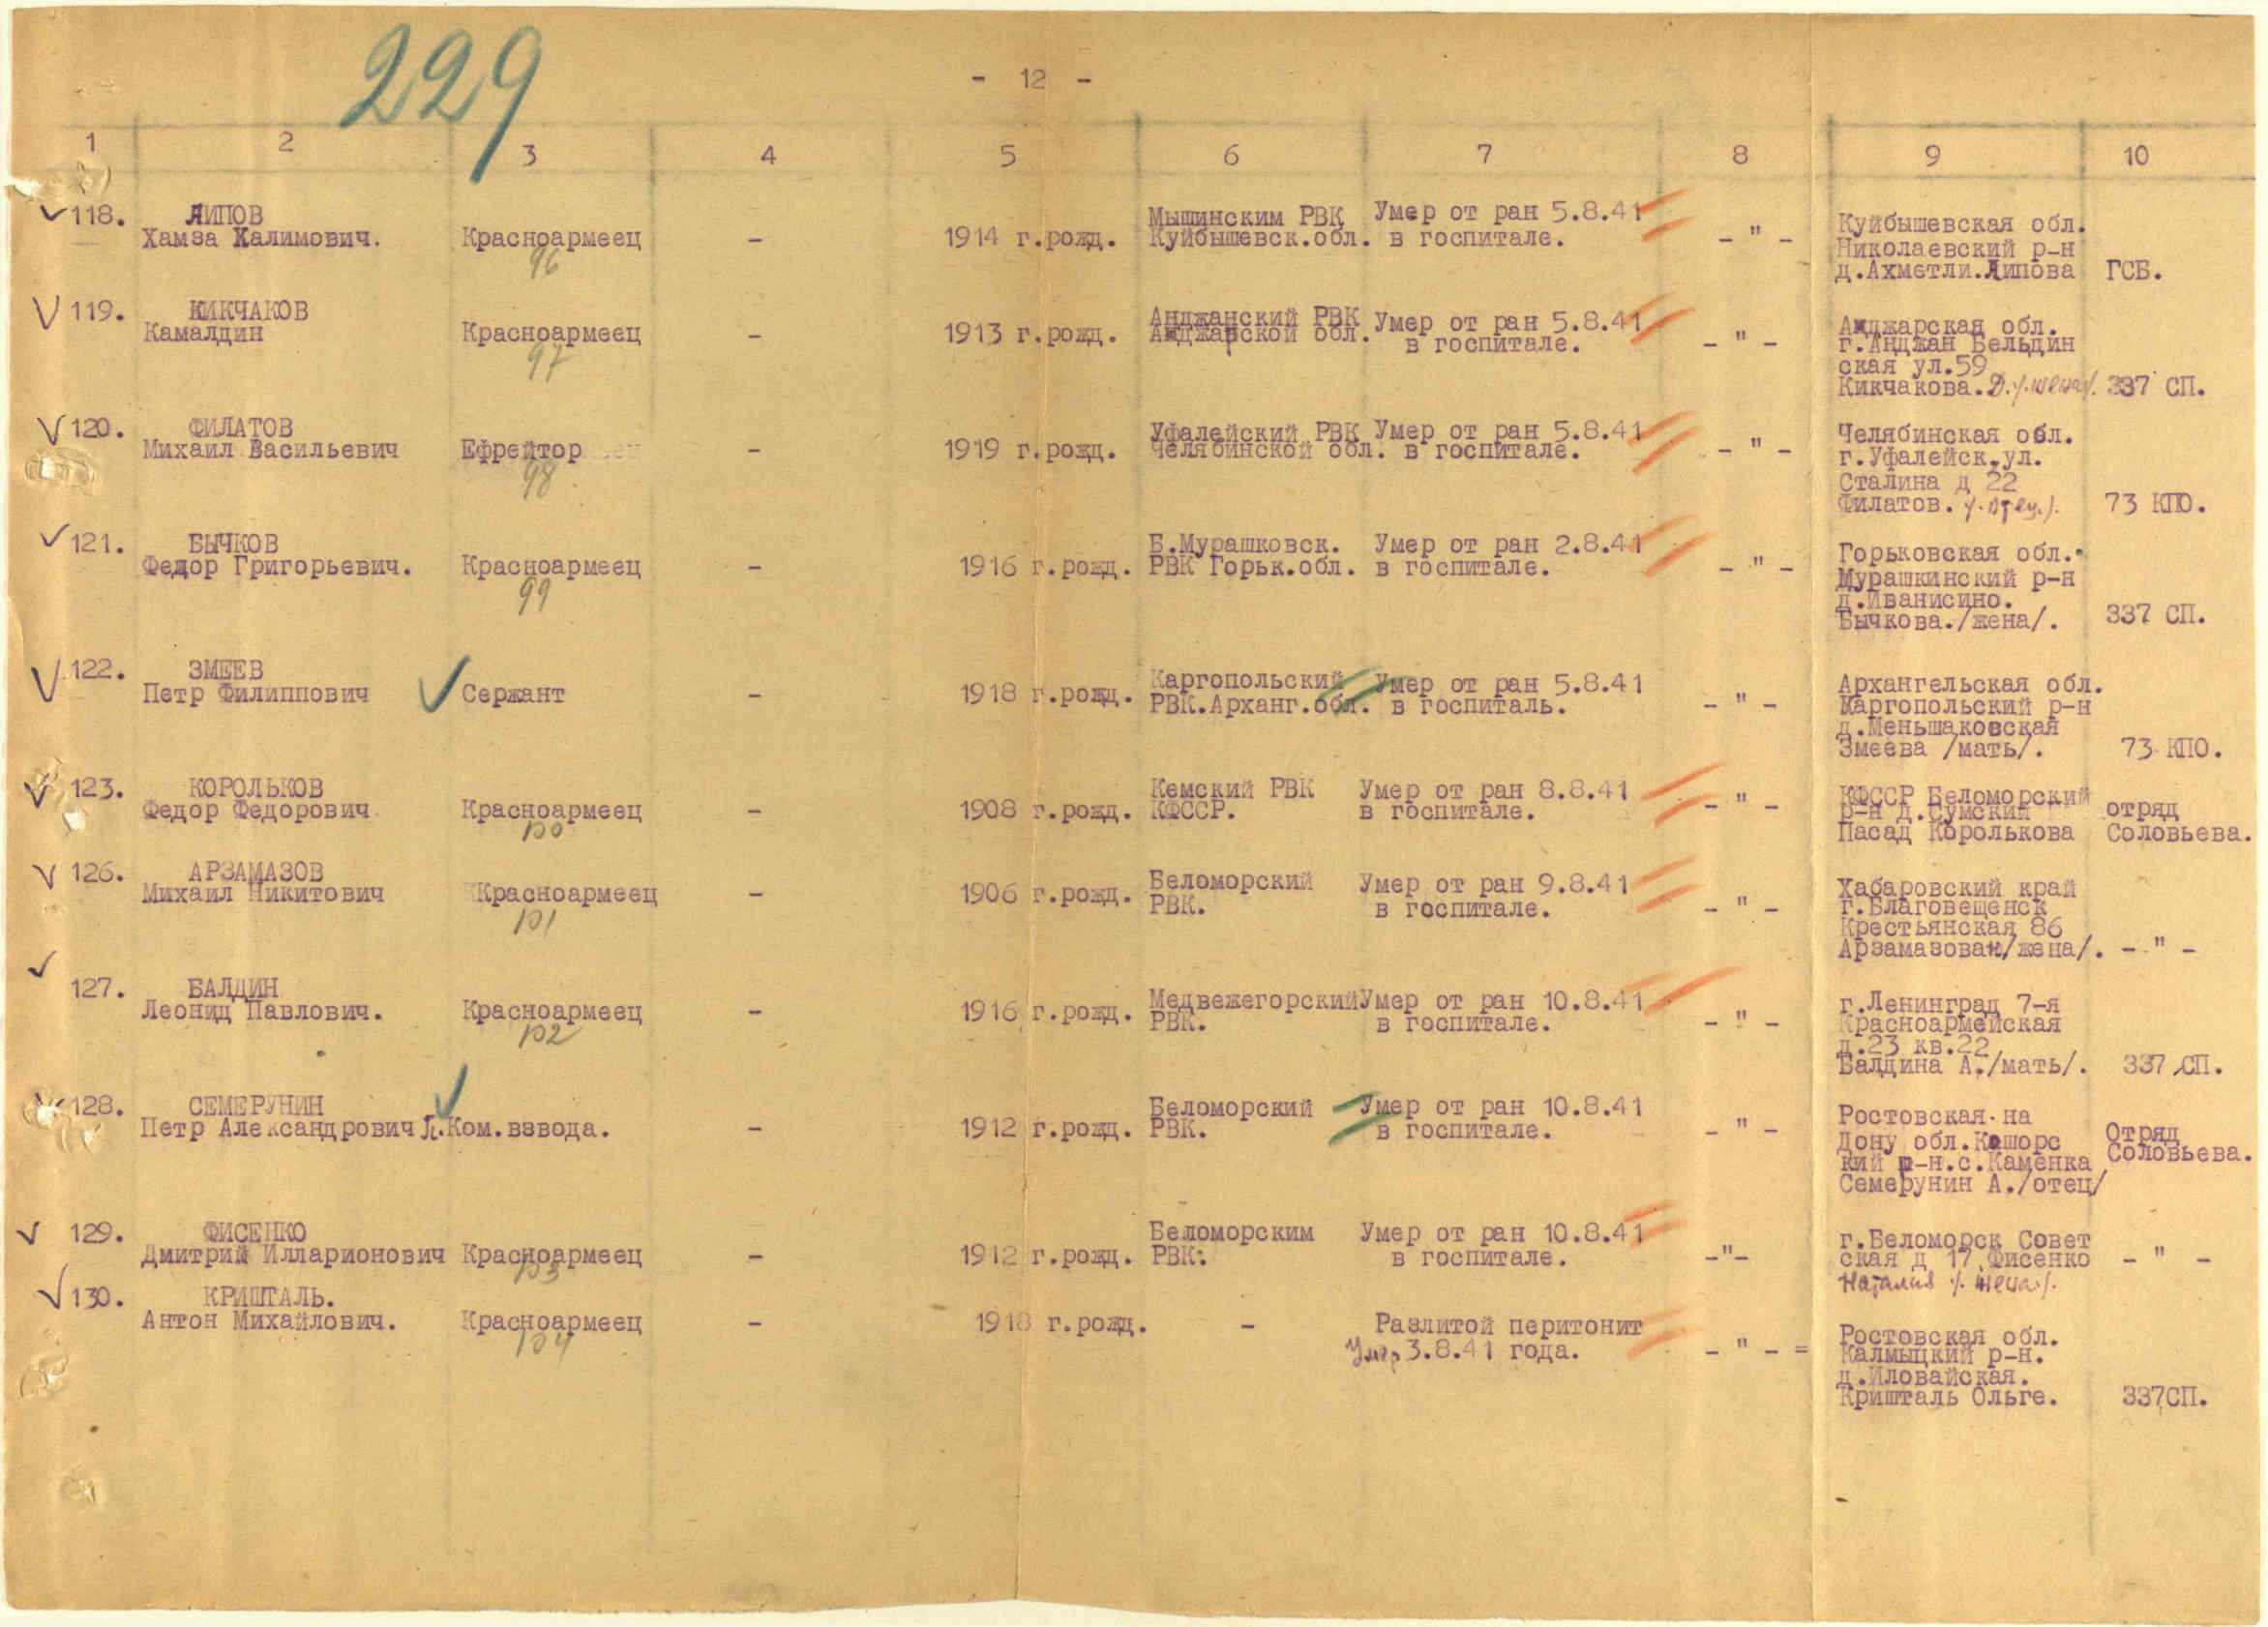 229
- 12 -
1 2 3 4 5 6 7 8 9 10
118. ЛИПОВ
Хамза Халимович. Красноармеец - 1914 г.рожд. Мышинским РВК Умер от ран 5.8.41 - " - Куйбышевская обл.
96 Куйбышевск.обл. в госпитале. Николаевский р-н
д.Ахметли.Липова ГСБ.
119. КИКЧАКОВ
Камалдин Красноармеец - 1913 г.рожд. Анджанский РВК Умер от ран 5.8.41 - " - Анджарская обл.
97 Анджарской обл. в госпитале. г.Анджан Бельдин
ская ул.59
Кикчакова.Д./.жена/. 337 СП.
120. ФИЛАТОВ
Михаил Васильевич Ефрейтор - 1919 г.рожд. Уфалейский РВК Умер от ран 5.8.41 - " - Челябинская обл.
98 Челябинской обл. в госпитале. г.Уфалейск.ул.
Сталина д 22
Филатов. /.отец./. 73 КПО.
121. БЫЧКОВ
Федор Григорьевич. Красноармеец - 1916 г.рожд. Б.Мурашковск. Умер от ран 2.8.41 - " - Горьковская обл.
99 РВК Горьк.обл. в госпитале. Мурашкинский р-н
д.Иванисино.
Бычкова./жена/. 337 СП.
122. ЗМЕЕВ
Петр Филиппович Сержант - 1918 г.рожд. Каргопольский Умер от ран 5.8.41 - " - Архангельская обл.
РВК.Арханг.обл. в госпиталь. Каргопольский р-н
д.Меньшаковская
Змеева /мать/. 73 КПО.
123. КОРОЛЬКОВ
Федор Федорович Красноармеец - 1908 г.рожд. Кемский РВК Умер от ран 8.8.41 - " - КФССР Беломорский
100 КФССР. в госпитале. р-н д.Сумский отряд
Пасад Королькова Соловьева.
126. АРЗАМАЗОВ
Михаил Никитович Красноармеец - 1906 г.рожд. Беломорский Умер от ран 9.8.41 - " - Хабаровский край
101 РВК. в госпитале. г.Благовещенск
Крестьянская 86
Арзамазова/жена/. - " -
127. БАЛДИН
Леонид Павлович. Красноармеец - 1916 г.рожд. Медвежегорский Умер от ран 10.8.41 - " - г.Ленинград 7-я
102 РВК. в госпитале. Красноармейская
д.23 кв.22
Балдина А./мать/. 337 СП.
128. СЕМЕРУНИН
Петр Александрович Ком.взвода. - 1912 г.рожд. Беломорский Умер от ран 10.8.41 - " - Ростовская на
РВК. в госпитале. Дону обл.Кашорс Отряд
кий р-н.с.Каменка Соловьева.
Семерунин А./отец/
129. ФИСЕНКО
Дмитрий Илларионович Красноармеец - 1912 г.рожд. Беломорским Умер от ран 10.8.41 -"- г.Беломорск Совет
103 РВК. в госпитале. ская д 17.Фисенко - " -
Наталия /.жена./.
130. КРИШТАЛЬ.
Антон Михайлович. Красноармеец - 1918 г.рожд. - Разлитой перитонит
104 Умер 3.8.41 года. - " - = Ростовская обл.
Калмыцкий р-н.
д.Иловайская.
Кришталь Ольге. 337СП.